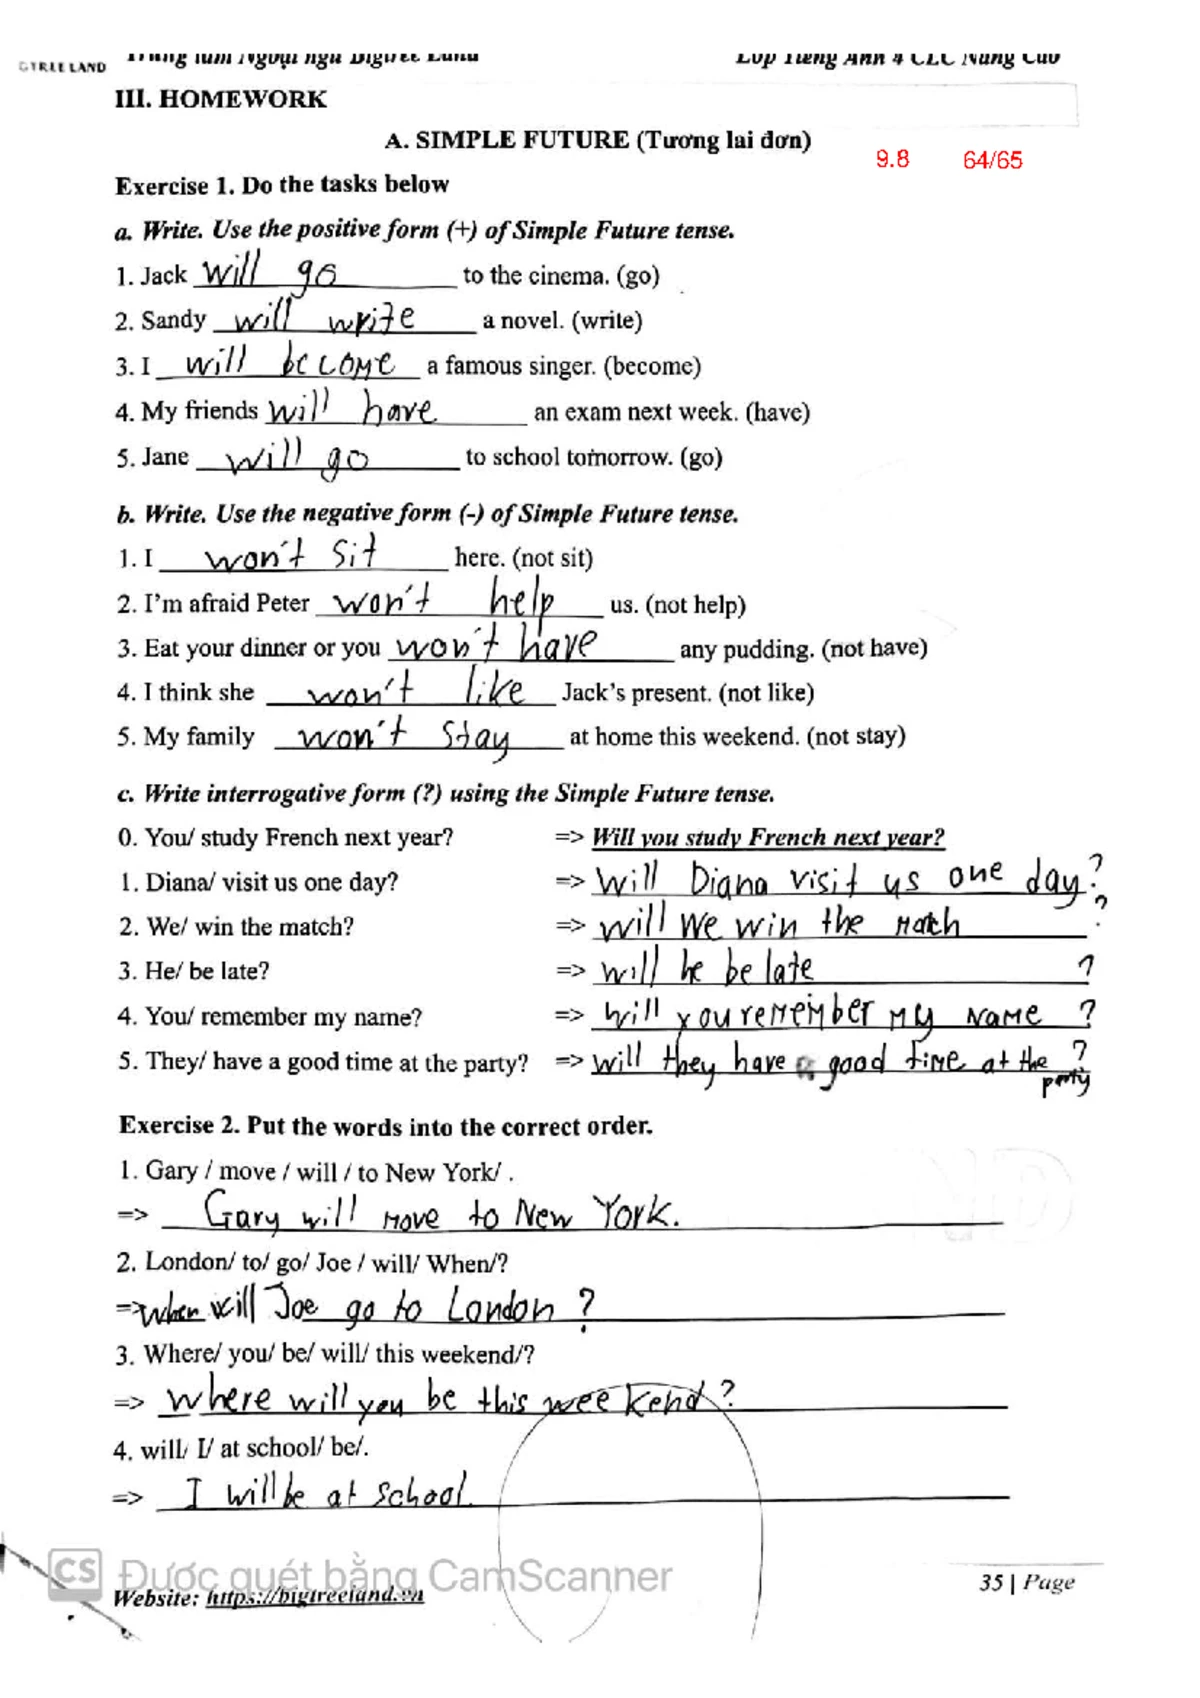 GTREE LAND Trung tâm Ngoại ngữ Bigtree Land Lớp Tiếng Anh 4 CLC Nâng Cao
III. HOMEWORK
A. SIMPLE FUTURE (Tương lai đơn)
9.8 64/65
Exercise 1. Do the tasks below
a. Write. Use the positive form (+) of Simple Future tense.
1. Jack will go to the cinema. (go)
2. Sandy will write a novel. (write)
3. I will become a famous singer. (become)
4. My friends will have an exam next week. (have)
5. Jane will go to school tomorrow. (go)
b. Write. Use the negative form (-) of Simple Future tense.
1. I won't sit here. (not sit)
2. I'm afraid Peter won't help us. (not help)
3. Eat your dinner or you won't have any pudding. (not have)
4. I think she won't like Jack's present. (not like)
5. My family won't stay at home this weekend. (not stay)
c. Write interrogative form (?) using the Simple Future tense.
0. You/ study French next year? => Will you study French next year?
1. Diana/ visit us one day? => will Diana visit us one day?
2. We/ win the match? => will We win the match ?
3. He/ be late? => will he be late ?
4. You/ remember my name? => will you remember my name ?
5. They/ have a good time at the party? => will they have a good time at the party ?
Exercise 2. Put the words into the correct order.
1. Gary / move / will / to New York/ .
=> Gary will move to New York.
2. London/ to/ go/ Joe / will/ When/?
=> When will Joe go to London ?
3. Where/ you/ be/ will/ this weekend/?
=> where will you be this weekend ?
4. will/ I/ at school/ be/.
=> I will be at school.
CS Được quét bằng CamScanner
Website: https://bigtreeland.vn 35 | Page